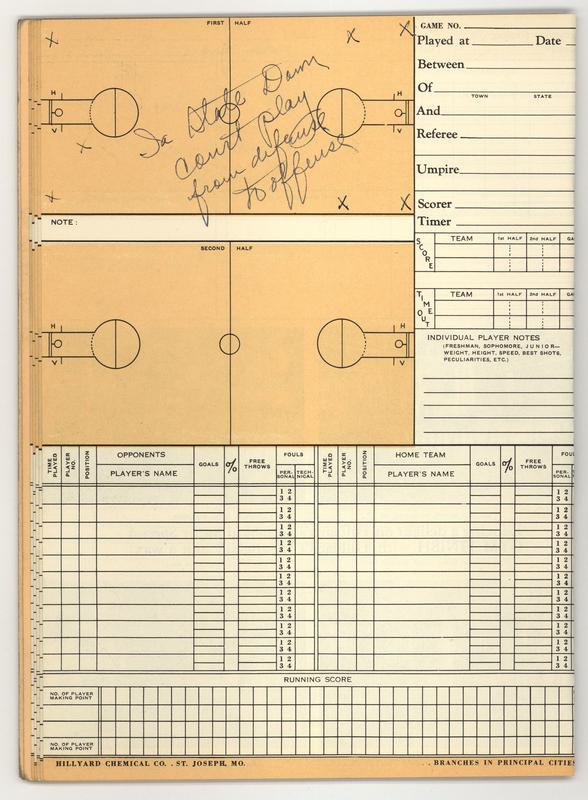 FIRST HALF
X X X
Ia State Down
court play
from defense
to offense
X X X X
H H
V V
NOTE:
SECOND HALF
H H
V V
GAME NO.
Played at Date
Between
Of
TOWN STATE
And
Referee
Umpire
Scorer
Timer
SCORE TEAM 1st HALF 2nd HALF GA
TIME OUT TEAM 1st HALF 2nd HALF GA
INDIVIDUAL PLAYER NOTES
(FRESHMAN, SOPHOMORE, JUNIOR—
WEIGHT, HEIGHT, SPEED, BEST SHOTS,
PECULIARITIES, ETC.)
TIME PLAYED PLAYER NO. POSITION OPPONENTS PLAYER'S NAME GOALS % FREE THROWS FOULS PER-SONAL TECH-NICAL TIME PLAYED PLAYER NO. POSITION HOME TEAM PLAYER'S NAME GOALS % FREE THROWS FOUL PER-SONAL
1 2 1 2
3 4 3 4
1 2 1 2
3 4 3 4
1 2 1 2
3 4 3 4
1 2 1 2
3 4 3 4
1 2 1 2
3 4 3 4
1 2 1 2
3 4 3 4
1 2 1 2
3 4 3 4
1 2 1 2
3 4 3 4
1 2 1 2
3 4 3 4
1 2 1 2
3 4 3 4
RUNNING SCORE
NO. OF PLAYER
MAKING POINT
NO. OF PLAYER
MAKING POINT
HILLYARD CHEMICAL CO. . ST. JOSEPH, MO. . . BRANCHES IN PRINCIPAL CITIES